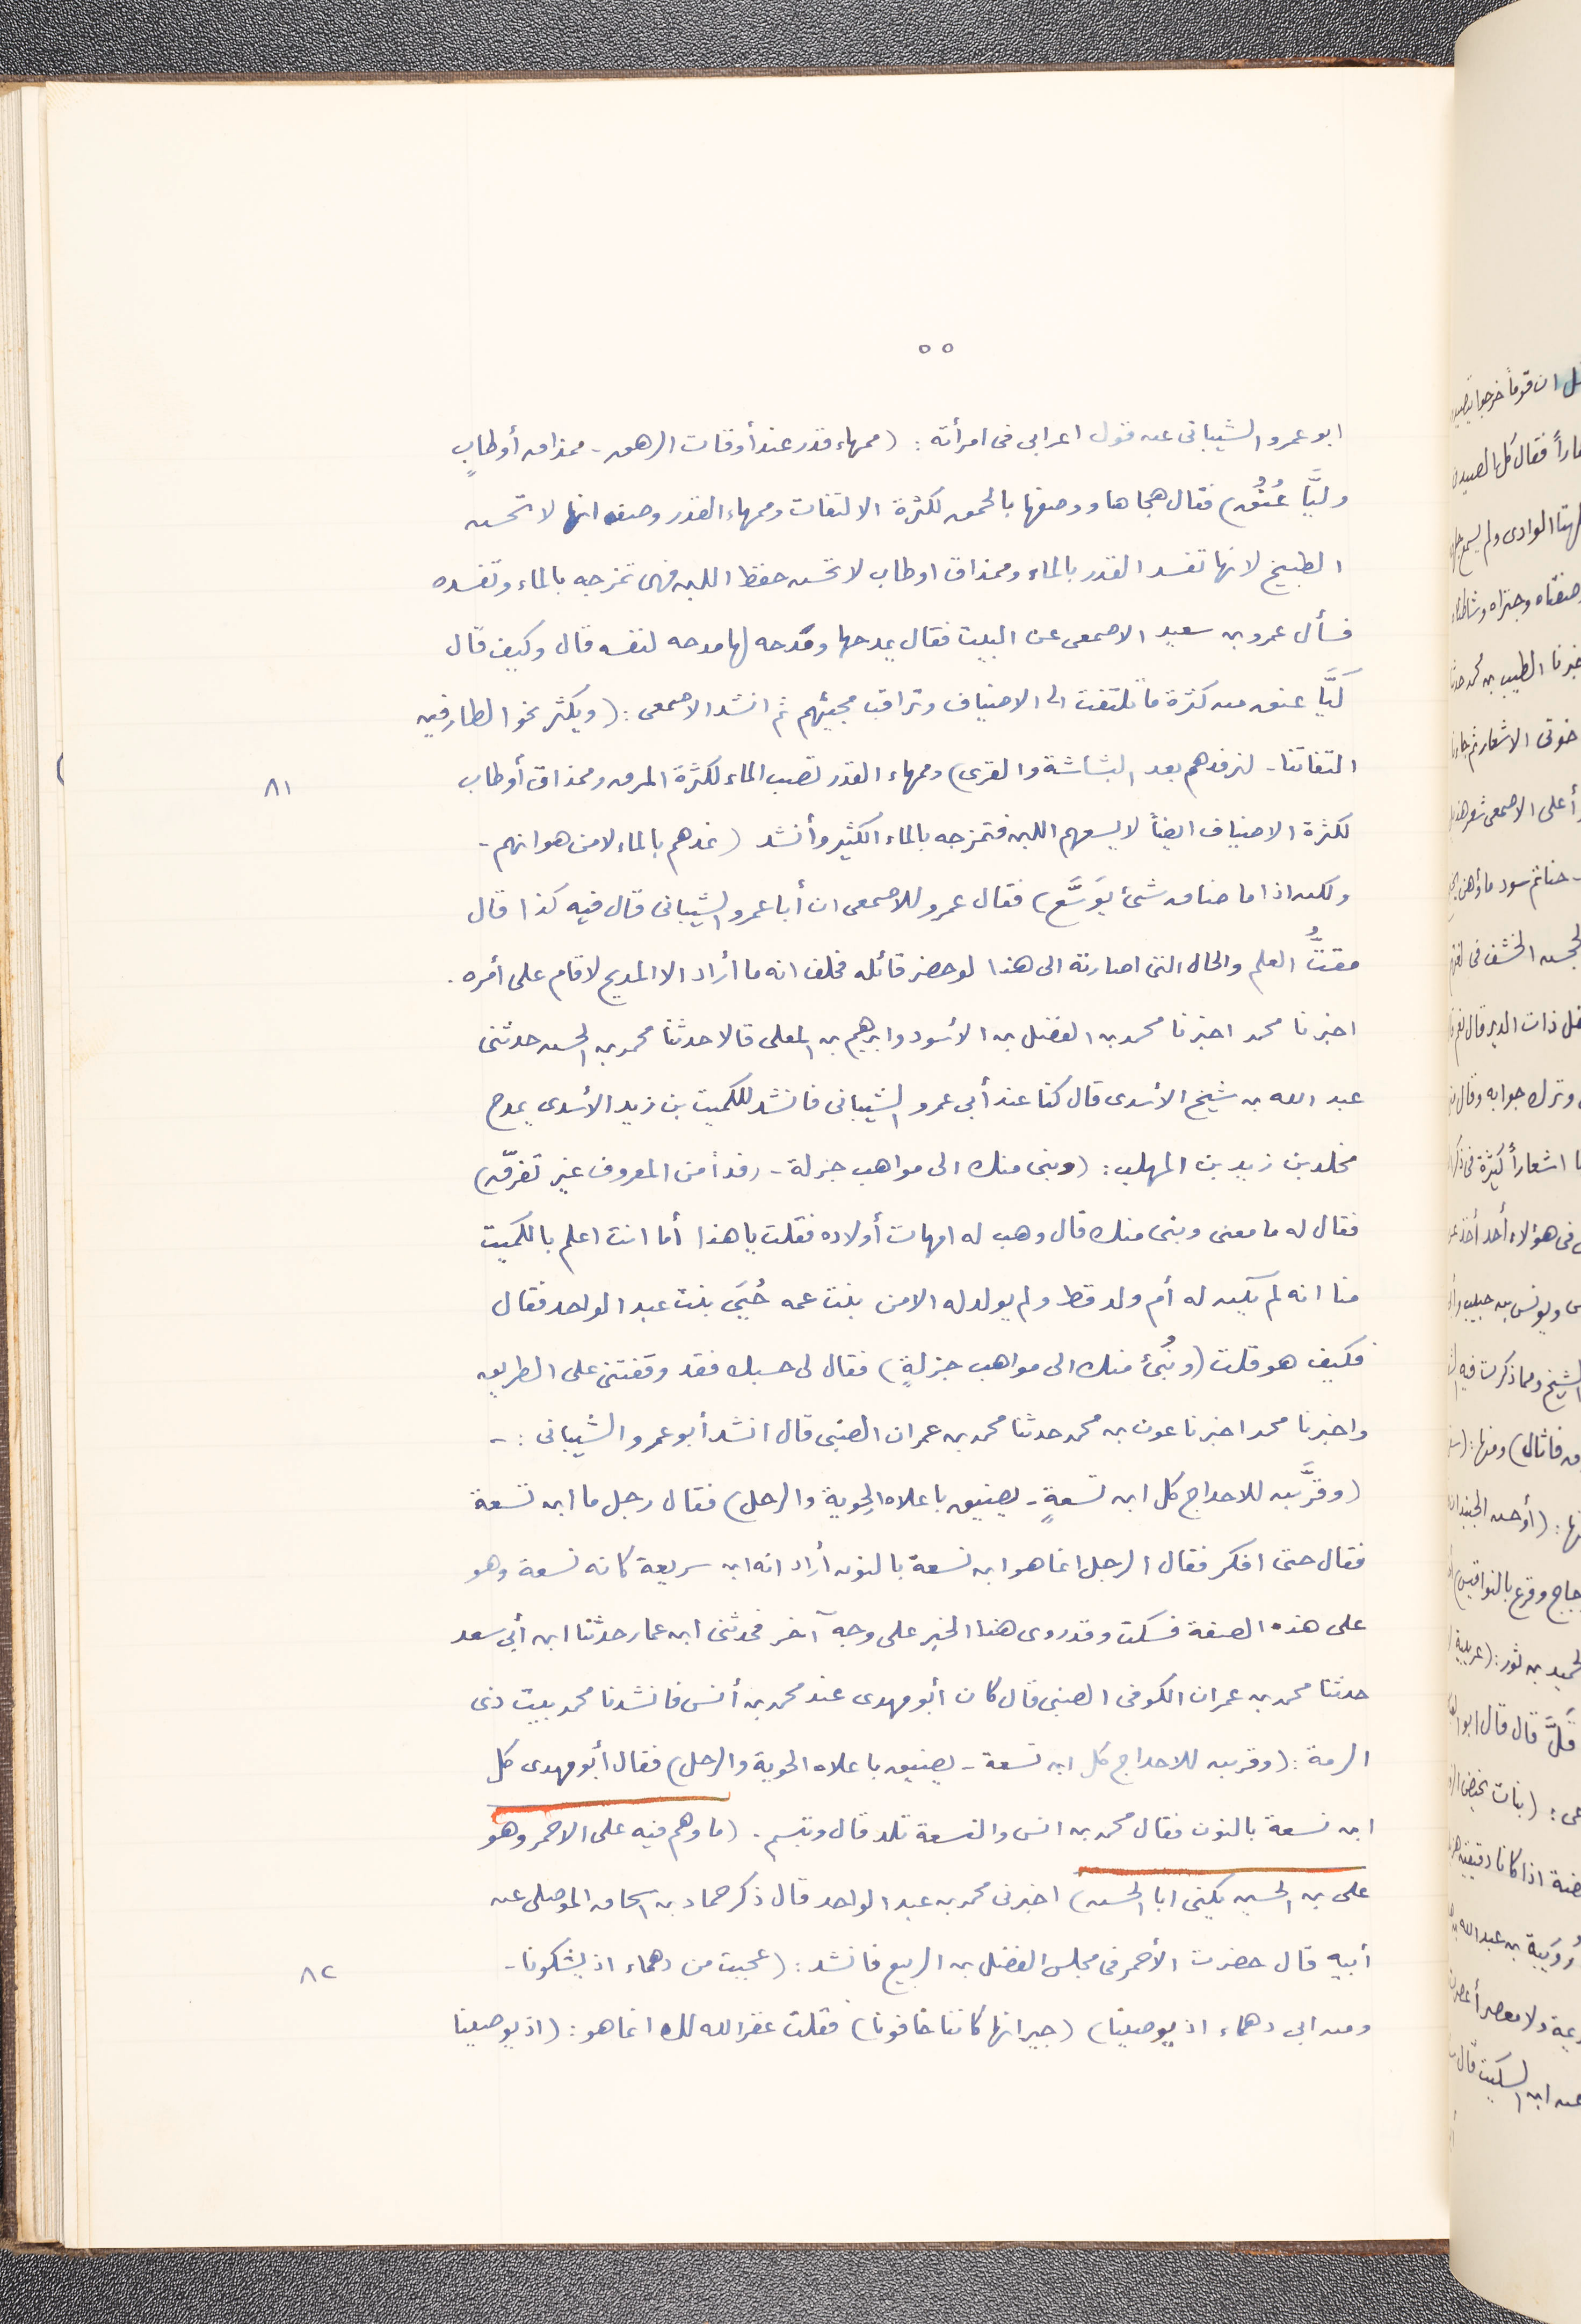 ٥٥
ابو عمرو الشيبانى عن قول اعرابى فى امرأته : (ممهاء قدر عند أوقات الرهق - ممذاق أوطابٍ
وليَّا عُنُق) فقال هجاها ووصفها بالحمق لكثرة الالتفات وممهاء القدر وصف انها لا تحسن
الطبيخ لانها تفسد القدر بالماء وممذاق اوطاب لا تحسن حفظ اللبن فهى تمزجه بالماء وتفسده
فسأل عمرو بن سعيد الاصمعى عن البيت فقال يمدحها ومدحه لها مدحه لنفسه قال وكيف قال
ليَّا عنق من كثرة ما تلتفت الى الاضياف وتراقب مجيئهم ثم انشد الاصمعى : (ويكثر نحو الطارقين
التفاتنا - لنرفدهم بعد البشاشة والقرى) وممهاء القدر تصب الماء لكثرة المرق وممذاق أوطاب
٨١
لكثرة الاضياف ايضاً لا يسعهم اللبن فتمزجه بالماء الكثير وأنشد (نمدهم بالماء لا من هوانهم -
ولكن اذا ما ضاق شىء يوَسَّع) فقال عمرو للاصمعى ان أبا عمرو الشيبانى قال فيه كذا قال
مقتُّ العلم والحال التى اصارته الى هذا لو حضر قائله فحلف انه ما أراد الا المديح لاقام على أمره .
اخبرنا محمد اخبرنا محمد بن الفضل بن الأسود وابرهيم بن المعلى قالا حدثنا محمد بن الحسن حدثنى
عبد الله بن شيخ الأسدى قال كنا عند أبى عمرو الشيبانى فانشد للكميت بن زيد الأسدى يمدح
مخلد بن زيد بن المهلب : (وبنى منك الى مواهب جزلة - رفداً من المعروف غير تفرّق)
فقال له ما معنى وبنى منك قال وهب له امهات أولاده فقلت يا هذا أما انت اعلم بالكميت
منا انه لم يكن له أم ولد قط ولم يولد له الا من بنت عمه حُبَى بنت عبد الواحد فقال
فكيف هو قلت (ونُبئ منك الى مواهب جزلةٍ) فقال لى حسبك فقد وقفتنى على الطريق
واخبرنا محمد اخبرنا عون بن محمد حدثنا محمد بن عمران الضبى قال انشد أبو عمرو الشيبانى : -
(وقرَّبن للاحداج كل ابن تسعةٍ - يضيق باعلاه الحوية والرحل) فقال رجل ما ابن تسعة
فقال حتى افكر فقال الرجل انما هو ابن نسعة بالنون أراد انه ابن سريعة كانه نسعة وهو
على هذه الصفة فسكت وقد روى هذا الخبر على وجه آخر فحدثنى ابن عمار حدثنا ابن أبى سعد
حدثنا محمد بن عمران الكوفى الضبى قال كان أبو مهدى عند محمد بن أنس فانشدنا محمد بيت ذى
الرمة : (وقربن للاحداج كل ابن تسعة - يضيق باعلاه الحوية والرحل) فقال أبو مهدى كل
ابن نسعة بالنون فقال محمد بن انس والنسعة تلد قال وتبسم . (ما وهم فيه على الاحمر وهو
على بن الحسين يكنى ابا الحسن) اخبرنى محمد بن عبد الواحد قال ذكر حماد بن اسحاق الموصلى عن
أبيه قال حضرت الأحمر فى مجلس الفضل بن الربيع فانشد : (عجبت من دهماء اذ يشكونا -
٨٢
ومن ابى دهماء اذ يوصينا) (جيرانها كاننا خافونا) فقلت غفر الله لك انما هو : (اذ يوصينا